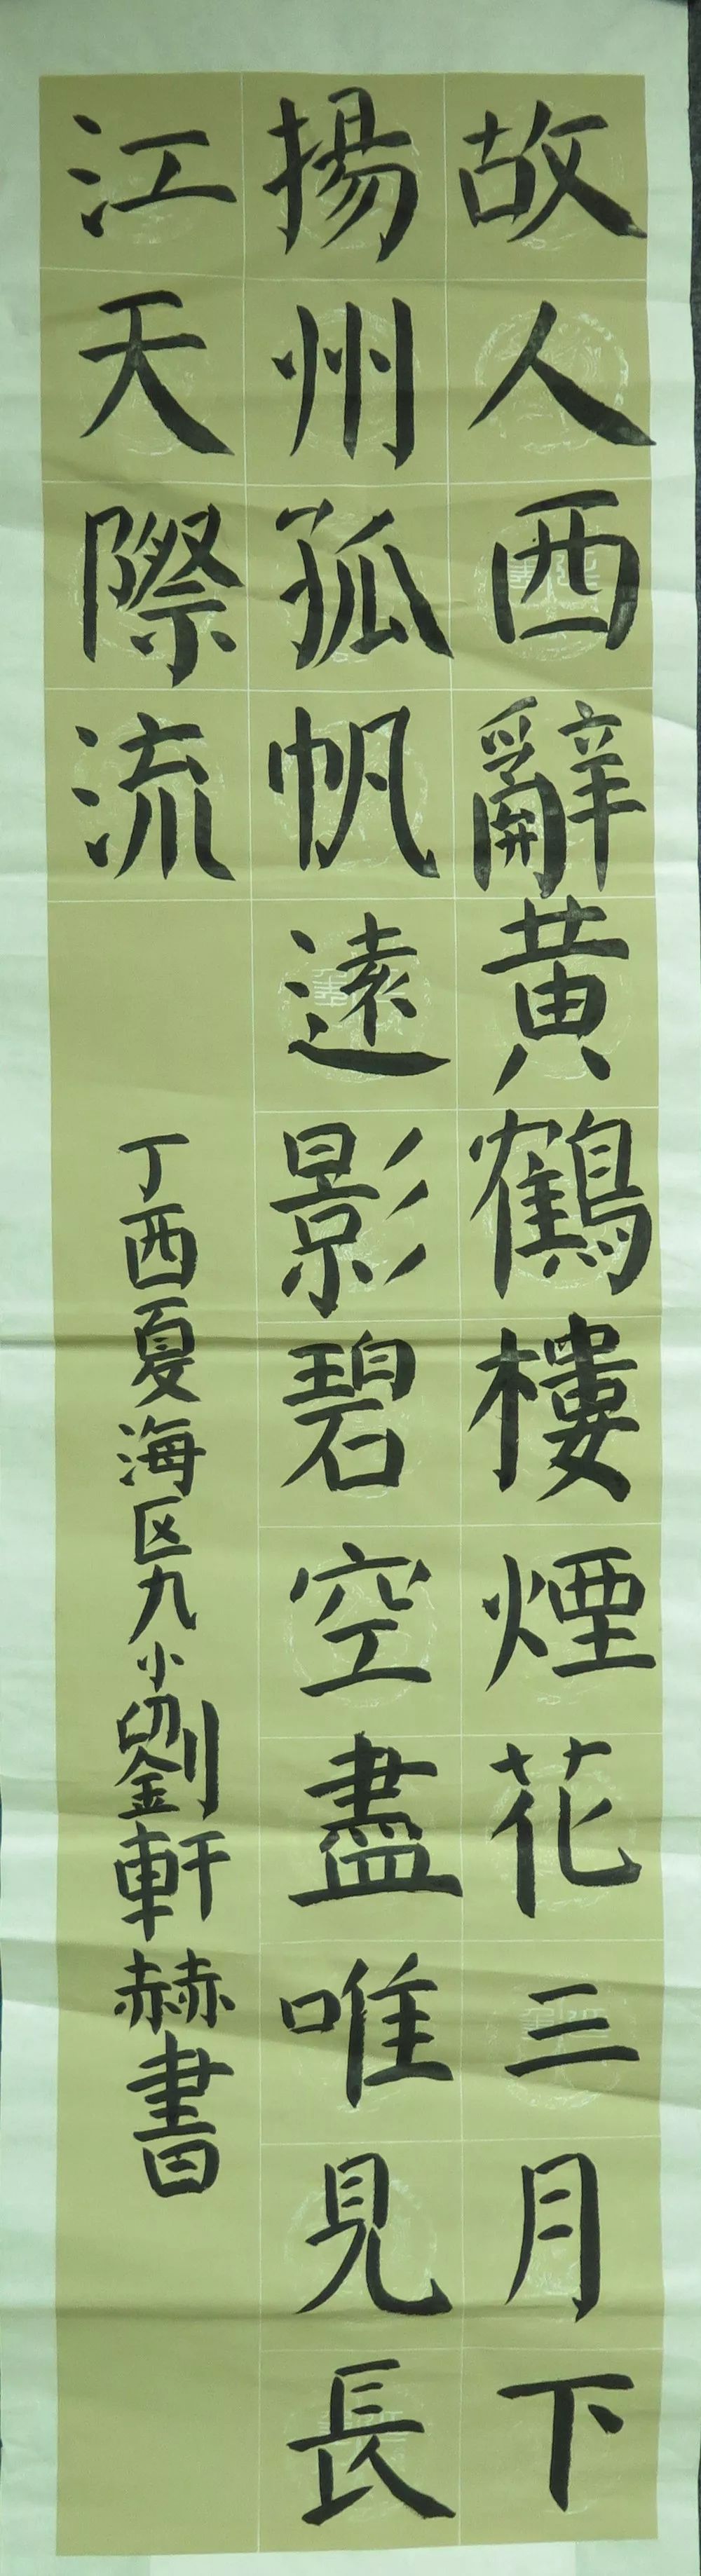 故人西辭黄鶴樓煙花三月下
揚州孤帆遠影碧空盡唯見長
江天際流
丁酉夏海区九小劉軒赫書